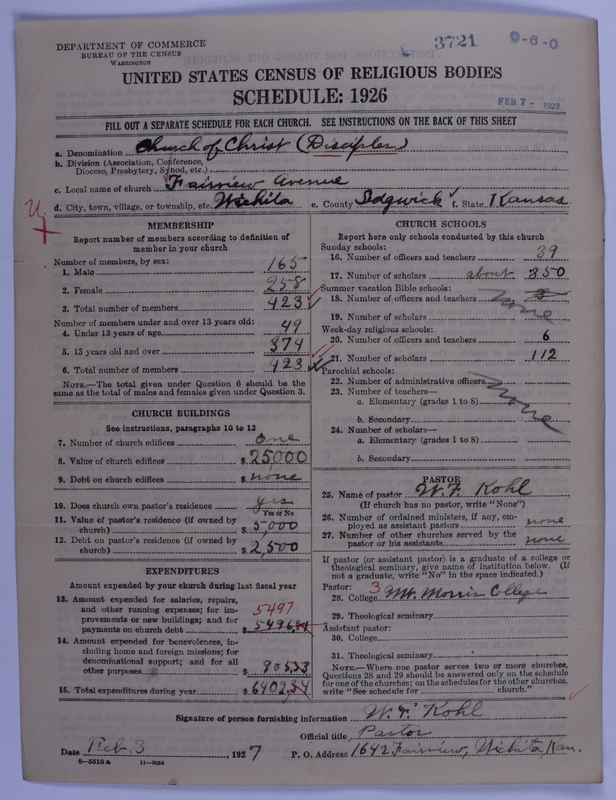 3721 9-6-0
DEPARTMENT OF COMMERCE
BUREAU OF THE CENSUS
WASHINGTON
UNITED STATES CENSUS OF RELIGIOUS BODIES
SCHEDULE: 1926
FEB 7 - 1927
FILL OUT A SEPARATE SCHEDULE FOR EACH CHURCH. SEE INSTRUCTIONS ON THE BACK OF THIS SHEET
a. Denomination Church of Christ (Disciples)
b. Division (Association, Conference, Diocese, Presbytery, Synod, etc.)
c. Local name of church Fairview Avenue
d. City, town, village, or township, etc. Wichita e. County Sedgwick f. State Kansas
U.
MEMBERSHIP
Report number of members according to definition of
member in your church
Number of members, by sex:
1. Male 165
2. Female 258
3. Total number of members 423
Number of members under and over 13 years old:
4. Under 13 years of age 49
5. 13 years old and over 374
6. Total number of members 423
NOTE.—The total given under Question 6 should be the
same as the total of males and females given under Question 3.
CHURCH BUILDINGS
See instructions, paragraphs 10 to 12
7. Number of church edifices one
8. Value of church edifices $ 25000
9. Debt on church edifices $ none
10. Does church own pastor's residence yes
Yes or No
11. Value of pastor's residence (if owned by
church) $ 5,000
12. Debt on pastor's residence (if owned by
church) $ 2,500
EXPENDITURES
Amount expended by your church during last fiscal year
13. Amount expended for salaries, repairs,
and other running expenses; for im- 5497
provements or new buildings; and for
payments on church debt $ 5496.81
14. Amount expended for benevolences, in-
cluding home and foreign missions; for
denominational support; and for all
other purposes $ 905.53
15. Total expenditures during year $ 6402.34
CHURCH SCHOOLS
Report here only schools conducted by this church
Sunday schools:
16. Number of officers and teachers 39
17. Number of scholars about 350
Summer vacation Bible schools:
18. Number of officers and teachers
19. Number of scholars none
Week-day religious schools:
20. Number of officers and teachers 6
21. Number of scholars 112
Parochial schools:
22. Number of administrative officers
23. Number of teachers—
a. Elementary (grades 1 to 8) none
b. Secondary
24. Number of scholars—
a. Elementary (grades 1 to 8)
b. Secondary
PASTOR
25. Name of pastor W. F. Kohl
(If church has no pastor, write "None")
26. Number of ordained ministers, if any, em-
ployed as assistant pastors none
27. Number of other churches served by the
pastor or his assistants none
If pastor (or assistant pastor) is a graduate of a college or
theological seminary, give name of institution below. (If
not a graduate, write "No" in the space indicated.)
Pastor: 3
28. College Mt. Morris College
29. Theological seminary
Assistant pastor:
30. College
31. Theological seminary
NOTE.—Where one pastor serves two or more churches,
Questions 28 and 29 should be answered only on the schedule
for one of the churches; on the schedules for the other churches,
write "See schedule for church."
Signature of person furnishing information W. F. Kohl
Official title Pastor
Date Feb. 3 1927 P. O. Address 1642 Fairview, Wichita, Kan.
8-5518a 11-9054